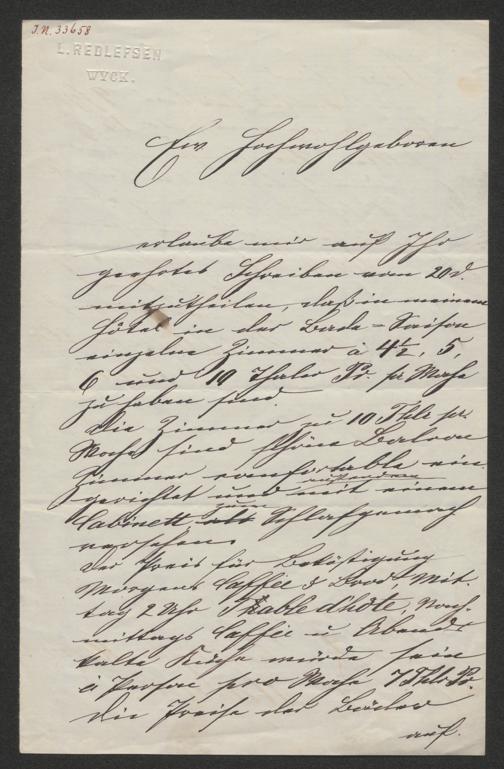 I.N. 33658
L. REDLEFSEN
WYCK.
Ew Hochwohlgeboren
erlaube mir auf Ihr
geehrtes Schreiben vom 20 d.
mitzutheilen, daß in meinem
Hôtel in der Bade=Saison
einzelne Zimmer à 4½, 5,
6 und 10 Thaler Pr. pr Woche
zu haben sind.
Die Zimmer zu 10 Thlr pr.
Woche sind schöne Balcon
Zimmer comfortable ein
gerichtet und mit einem
Cabinett zum als Schlafgemach
versehen.
Der Preis für Beköstigung
Morgens Caffée & Brod Mit-
tag 2 Uhr Table d'hôte, Nach-
mittags Caffée u Abends
kalte Küche würde sein
à Person pro Woche 7 Thlr Pr.
Die Preise der Bäder
auf.